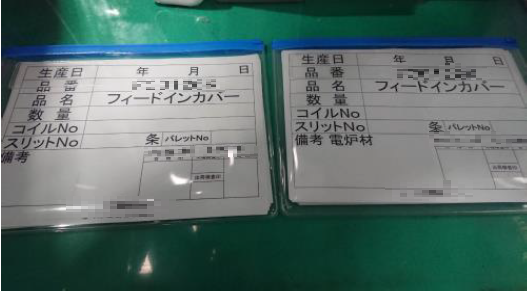 生産日 年 月 日
品番
品名 フィードインカバー
数量
コイルNo
スリットNo 条 パレットNo
備考
出荷検査印
生産日 年 月 日
品番
品名 フィードインカバー
数量
コイルNo
スリットNo 条 パレットNo
備考 電炉材
出荷検査印